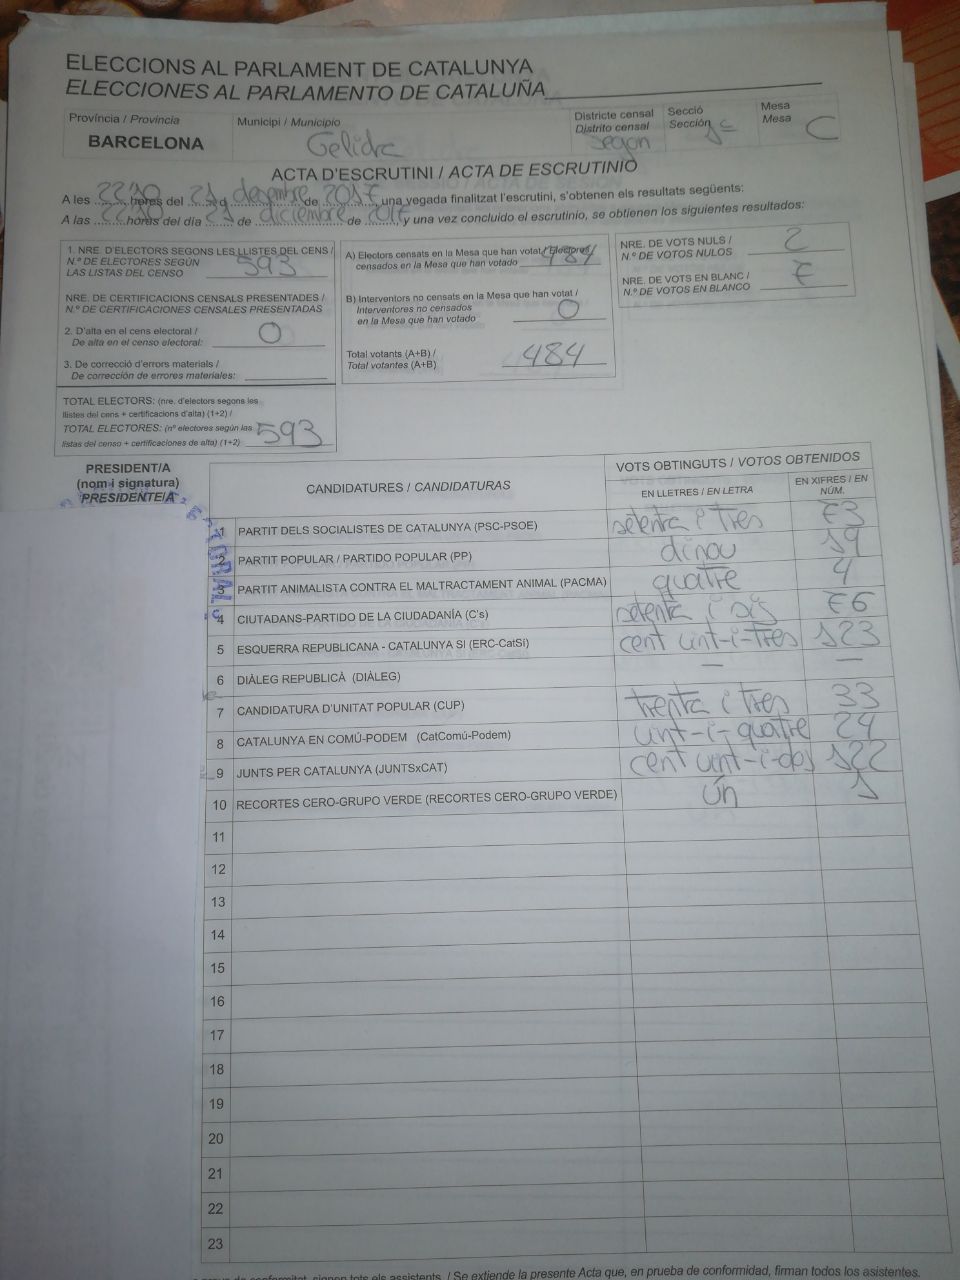 ELECCIONS AL PARLAMENT DE CATALUNYA
ELECCIONES AL PARLAMENTO DE CATALUÑA
Província / Provincia
BARCELONA
Municipi / Municipio
Gelida
Districte censal
Distrito censal
segon
Secció
Sección
1ª
Mesa
Mesa
C
ACTA D'ESCRUTINI / ACTA DE ESCRUTINIO
A les 22'10 hores del 21 d desembre de 2017 una vegada finalitzat l'escrutini, s'obtenen els resultats següents:
A las 22'10 horas del día 21 de diciembre de 2017 y una vez concluido el escrutinio, se obtienen los siguientes resultados:
1. NRE. D'ELECTORS SEGONS LES LLISTES DEL CENS /
N.º DE ELECTORES SEGÚN
LAS LISTAS DEL CENSO 593
NRE. DE CERTIFICACIONS CENSALS PRESENTADES /
N.º DE CERTIFICACIONES CENSALES PRESENTADAS
2. D'alta en el cens electoral /
De alta en el censo electoral: 0
3. De correcció d'errors materials /
De corrección de errores materiales:
TOTAL ELECTORS: (nre. d'electors segons les
llistes del cens + certificacions d'alta) (1+2) /
TOTAL ELECTORES: (nº electores según las
listas del censo + certificaciones de alta) (1+2) 593
A) Electors censats en la Mesa que han votat / Electores
censados en la Mesa que han votado 484
B) Interventors no censats en la Mesa que han votat /
Interventores no censados
en la Mesa que han votado 0
Total votants (A+B) /
Total votantes (A+B) 484
NRE. DE VOTS NULS /
N.º DE VOTOS NULOS 2
NRE. DE VOTS EN BLANC /
N.º DE VOTOS EN BLANCO 7
PRESIDENT/A
(nom i signatura)
PRESIDENTE/A
CANDIDATURES / CANDIDATURAS
VOTS OBTINGUTS / VOTOS OBTENIDOS
EN LLETRES / EN LETRA
EN XIFRES / EN NÚM.
1 PARTIT DELS SOCIALISTES DE CATALUNYA (PSC-PSOE) setenta i tres 73
2 PARTIT POPULAR / PARTIDO POPULAR (PP) dinou 19
3 PARTIT ANIMALISTA CONTRA EL MALTRACTAMENT ANIMAL (PACMA) quatre 4
4 CIUTADANS-PARTIDO DE LA CIUDADANÍA (C's) setenta i sis 76
5 ESQUERRA REPUBLICANA - CATALUNYA SI (ERC-CatSí) cent vint-i-tres 123
6 DIÀLEG REPUBLICÀ (DIÀLEG) — —
7 CANDIDATURA D'UNITAT POPULAR (CUP) trenta i tres 33
8 CATALUNYA EN COMÚ-PODEM (CatComú-Podem) vint-i-quatre 24
9 JUNTS PER CATALUNYA (JUNTSxCAT) cent vint-i-dos 122
10 RECORTES CERO-GRUPO VERDE (RECORTES CERO-GRUPO VERDE) ún 1
11
12
13
14
15
16
17
18
19
20
21
22
23
conformitat, signen tots els assistents. / Se extiende la presente Acta que, en prueba de conformidad, firman todos los asistentes.